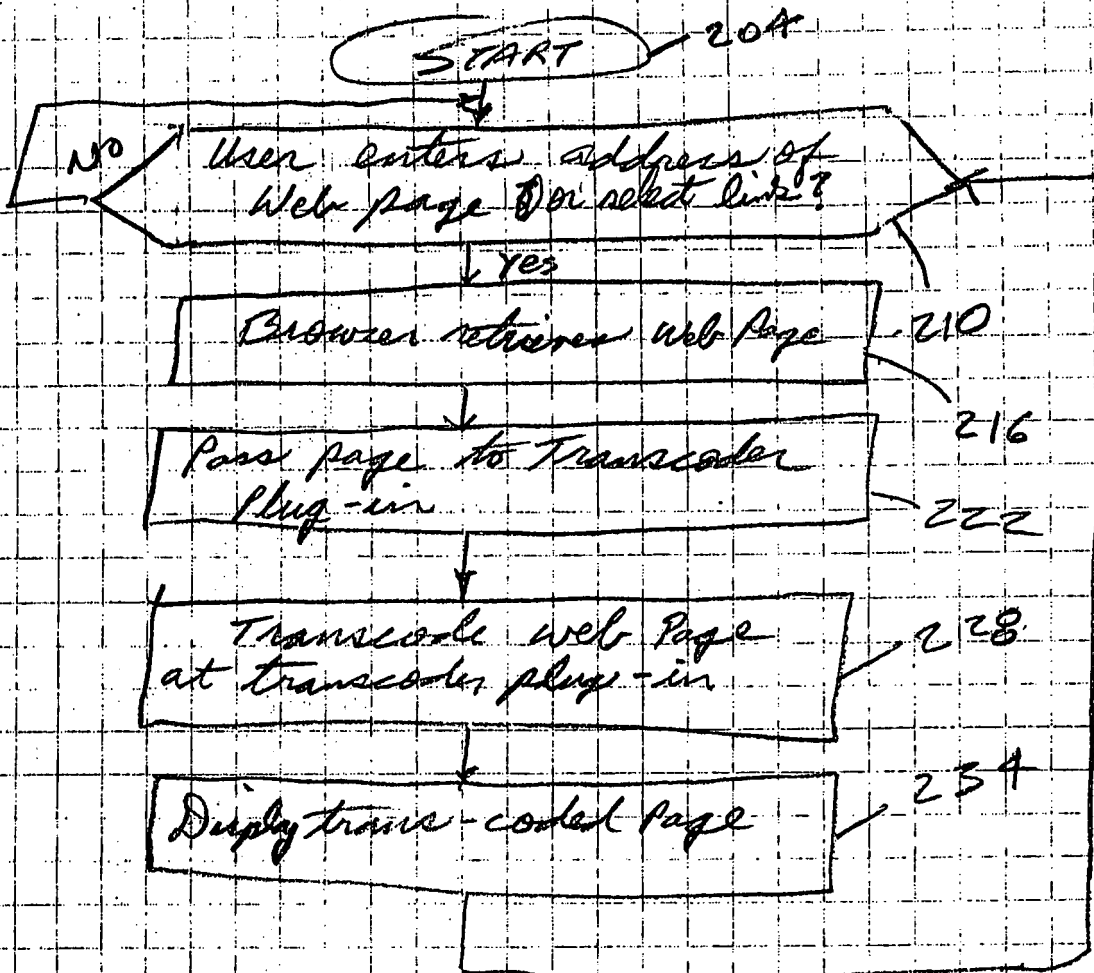 START
204
NO
User enters address of
Web page or select link?
Yes
210
Browser retrieves Web Page
216
Pass page to Transcoder
Plug-in
222
Transcode web Page
at transcoder plug-in
228
Disply trans-coded Page
234